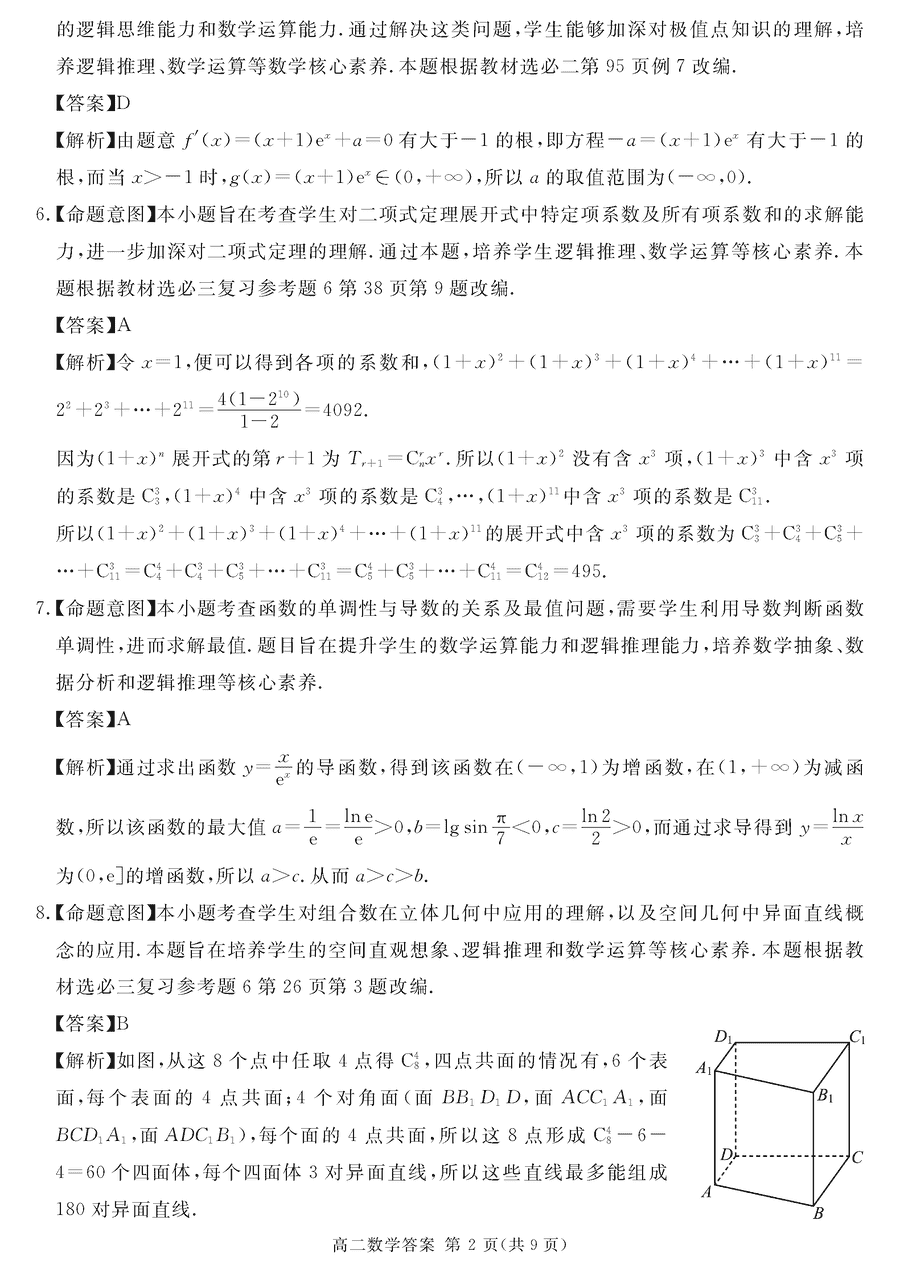 的逻辑思维能力和数学运算能力.通过解决这类问题,学生能够加深对极值点知识的理解,培
养逻辑推理、数学运算等数学核心素养.本题根据教材选必二第 95 页例 7 改编.
【答案】D
【解析】由题意 f′(x)=(x+1)eˣ+a=0 有大于-1 的根,即方程-a=(x+1)eˣ 有大于-1 的
根,而当 x>-1 时,g(x)=(x+1)eˣ∈(0,+∞),所以 a 的取值范围为(-∞,0).
6.【命题意图】本小题旨在考查学生对二项式定理展开式中特定项系数及所有项系数和的求解能
力,进一步加深对二项式定理的理解.通过本题,培养学生逻辑推理、数学运算等核心素养.本
题根据教材选必三复习参考题 6 第 38 页第 9 题改编.
【答案】A
【解析】令 x=1,便可以得到各项的系数和,(1+x)²+(1+x)³+(1+x)⁴+…+(1+x)¹¹=
2²+2³+…+2¹¹=4(1-2¹⁰)/(1-2)=4092.
因为(1+x)ⁿ 展开式的第 r+1 为 T_{r+1}=C_n^r x^r.所以(1+x)² 没有含 x³ 项,(1+x)³ 中含 x³ 项
的系数是 C_3^3,(1+x)⁴ 中含 x³ 项的系数是 C_4^3,…,(1+x)¹¹中含 x³ 项的系数是 C_{11}^3.
所以(1+x)²+(1+x)³+(1+x)⁴+…+(1+x)¹¹的展开式中含 x³ 项的系数为 C_3^3+C_4^3+C_5^3+
…+C_{11}^3=C_4^4+C_4^3+C_5^3+…+C_{11}^3=C_5^4+C_5^3+…+C_{11}^4=C_{12}^4=495.
7.【命题意图】本小题考查函数的单调性与导数的关系及最值问题,需要学生利用导数判断函数
单调性,进而求解最值.题目旨在提升学生的数学运算能力和逻辑推理能力,培养数学抽象、数
据分析和逻辑推理等核心素养.
【答案】A
【解析】通过求出函数 y=x/eˣ 的导函数,得到该函数在(-∞,1)为增函数,在(1,+∞)为减函
数,所以该函数的最大值 a=1/e=ln e/e>0,b=lg sin π/7<0,c=ln 2/2>0,而通过求导得到 y=ln x/x
为(0,e]的增函数,所以 a>c.从而 a>c>b.
8.【命题意图】本小题考查学生对组合数在立体几何中应用的理解,以及空间几何中异面直线概
念的应用.本题旨在培养学生的空间直观想象、逻辑推理和数学运算等核心素养.本题根据教
材选必三复习参考题 6 第 26 页第 3 题改编.
【答案】B
【解析】如图,从这 8 个点中任取 4 点得 C_8^4,四点共面的情况有,6 个表
面,每个表面的 4 点共面;4 个对角面(面 BB₁D₁D,面 ACC₁A₁,面
BCD₁A₁,面 ADC₁B₁),每个面的 4 点共面,所以这 8 点形成 C_8^4-6-
4=60 个四面体,每个四面体 3 对异面直线,所以这些直线最多能组成
180 对异面直线.
D₁ C₁
A₁
B₁
D C
A
B
高二数学答案 第 2 页(共 9 页)